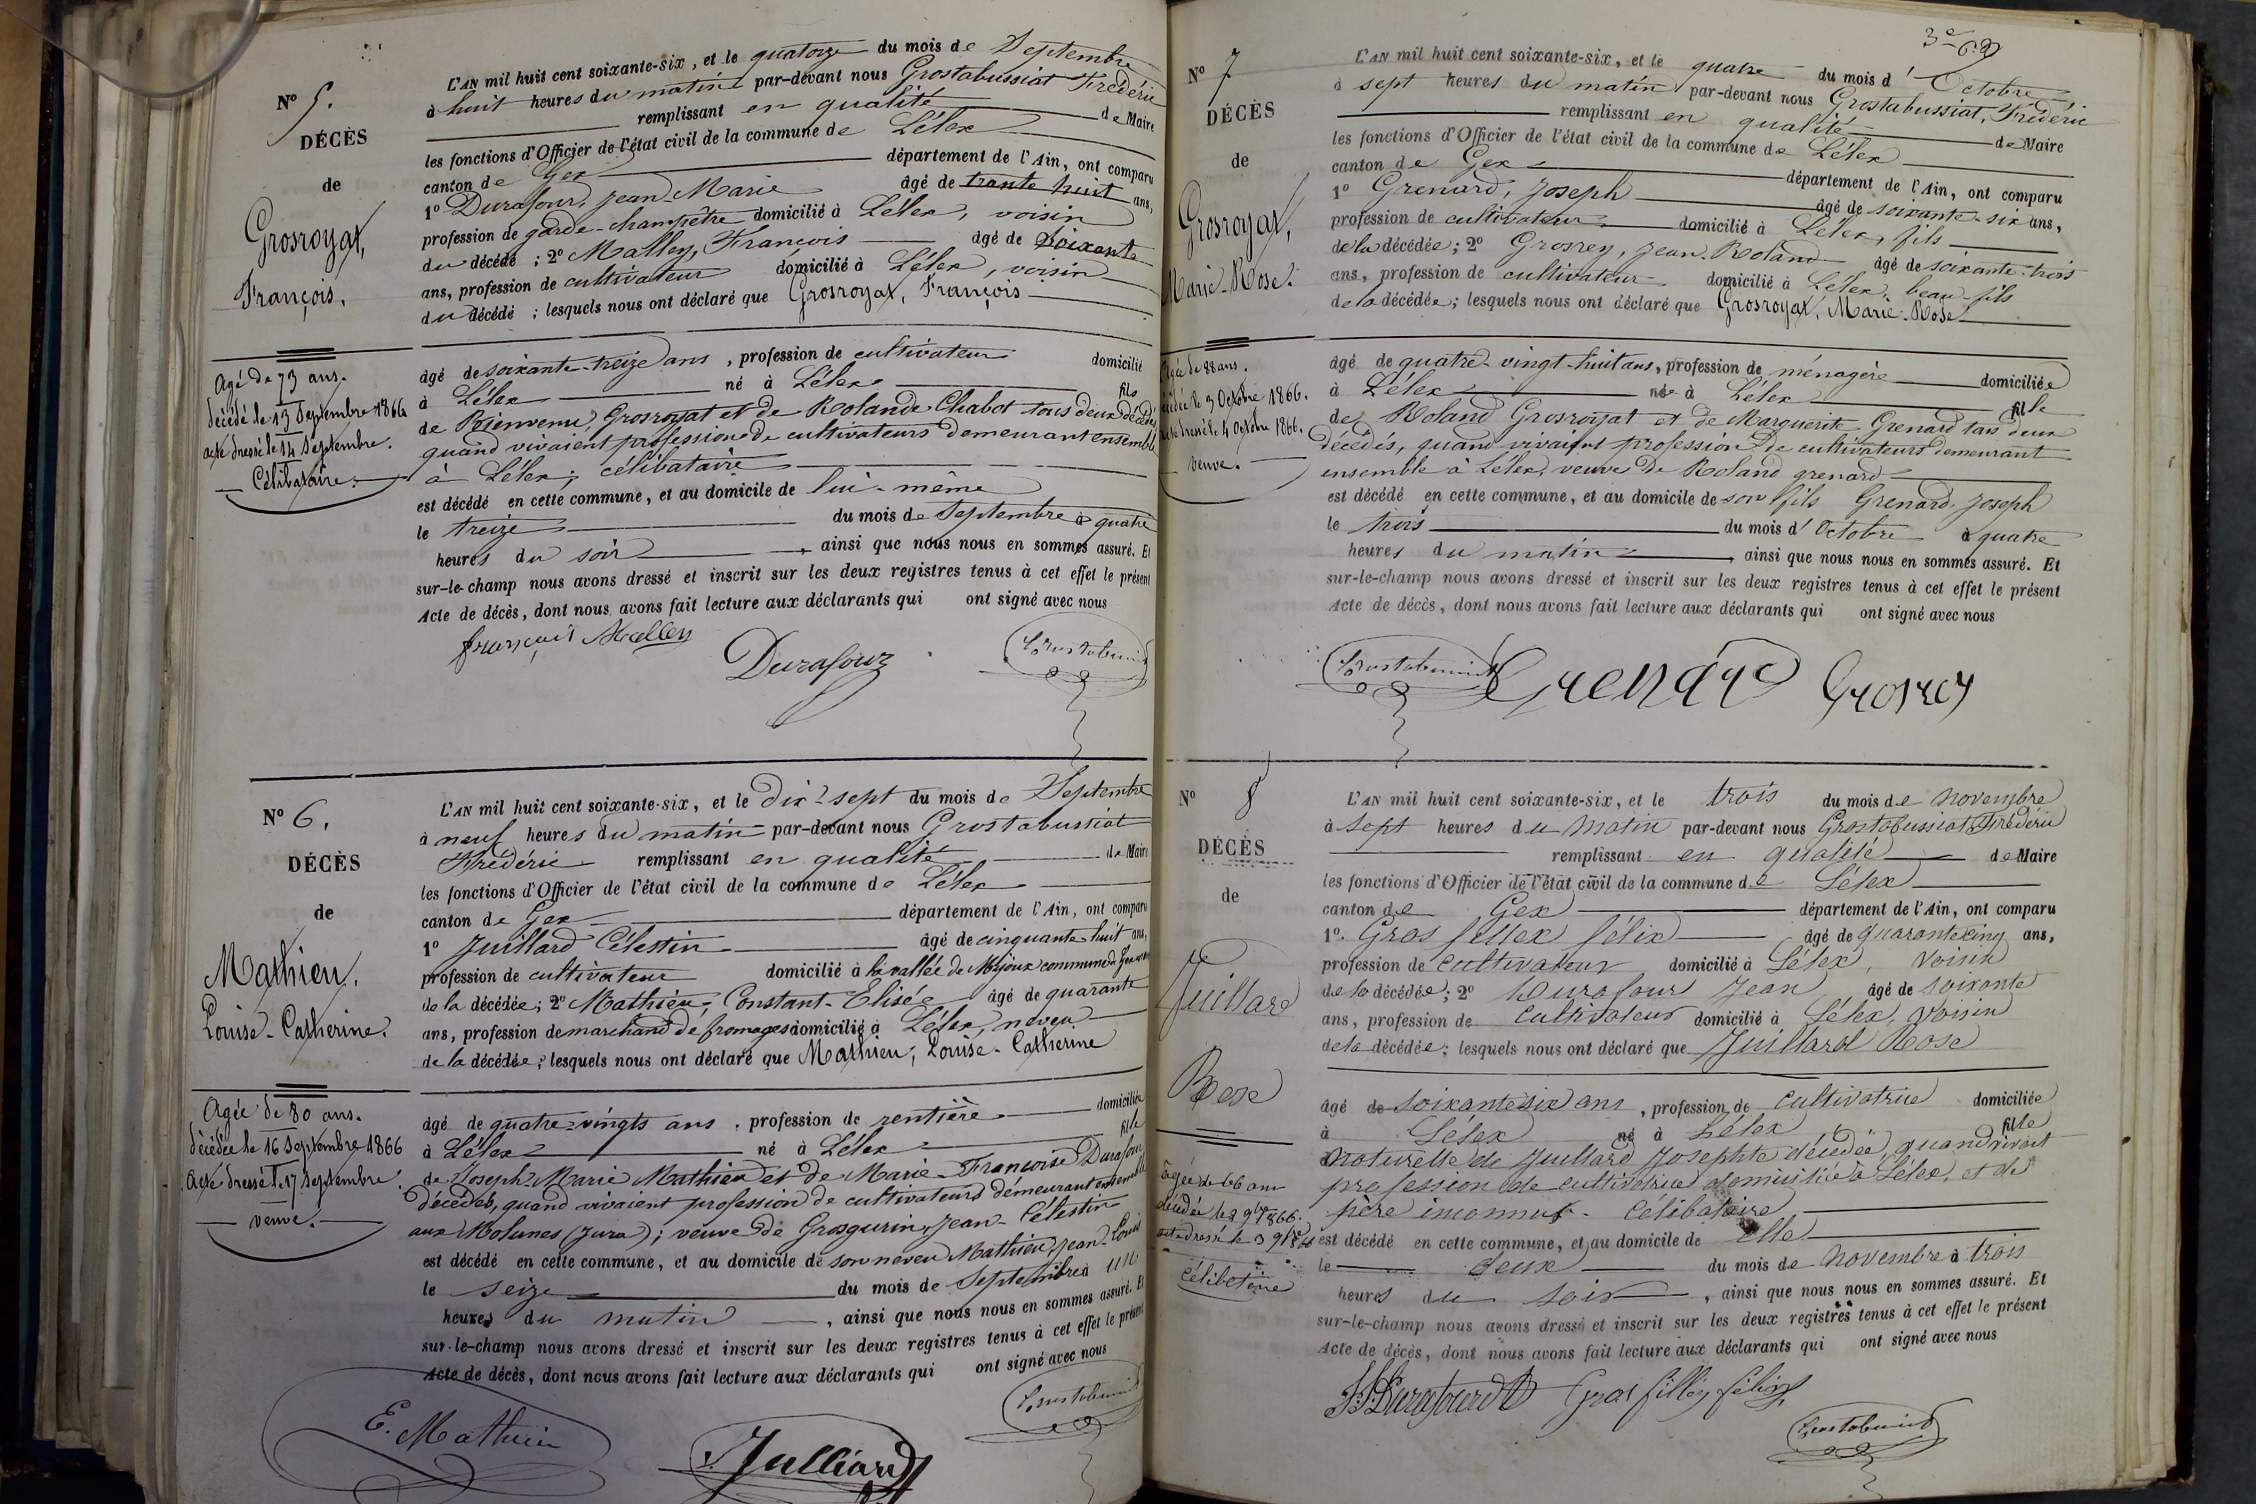 Nº 5.
DÉCÈS
de
Grosroyat,
François.
Agé de 73 ans.
décédé le 13 Septembre 1866
acte dressé le 14 Septembre.
Célibataire.
L'AN mil huit cent soixante-six, et le quatorze du mois de Septembre
à huit heures du matin par-devant nous Grostabussiat Frédéric
remplissant en qualité de Maire
les fonctions d'Officier de l'état civil de la commune de Lélex
canton de Gex département de l'Ain, ont comparu
1º Durafour, Jean-Marie âgé de trente huit ans,
profession de garde-champêtre domicilié à Lélex, voisin
du décédé ; 2º Malley, François âgé de soixante
ans, profession de cultivateur domicilié à Lélex, voisin
du décédé ; lesquels nous ont déclaré que Grosroyat, François
âgé de soixante-treize ans, profession de cultivateur domicilié
à Lélex né à Lélex fils
de Bienvenu, Grosroyat et de Rolande Chabot tous deux décédés,
quand vivaient profession de cultivateurs demeurant ensemble
à Lélex ; célibataire
est décédé en cette commune, et au domicile de lui-même
le treize du mois de Septembre à quatre
heures du soir, ainsi que nous nous en sommes assuré. Et
sur-le-champ nous avons dressé et inscrit sur les deux registres tenus à cet effet le présent
Acte de décès, dont nous avons fait lecture aux déclarants qui ont signé avec nous
françois Malley
Durafour
Grostabussiat
Nº 6.
DÉCÈS
de
Mathieu.
Louise-Catherine.
Agée de 80 ans.
décédée le 16 Septembre 1866
acte dressé le 17 Septembre.
veuve.
L'AN mil huit cent soixante-six, et le dix-sept du mois de Septembre
à neuf heures du matin par-devant nous Grostabussiat
Frédéric remplissant en qualité de Maire
les fonctions d'Officier de l'état civil de la commune de Lélex
canton de Gex département de l'Ain, ont comparu
1º Juillard Célestin âgé de cinquante huit ans,
profession de cultivateur domicilié à la vallée de Mijoux commune de Gex
de la décédée; 2º Mathieu, Constant-Elisée âgé de quarante
ans, profession de marchand de fromages domicilié à Lélex, neveu
de la décédée; lesquels nous ont déclaré que Mathieu, Louise-Catherine
âgé de quatre-vingts ans, profession de rentière domiciliée
à Lélex né à Lélex fille
de Joseph-Marie Mathieu et de Marie-Françoise Durafour
décédés, quand vivaient profession de cultivateurs démeurant ensemble
aux Molunes (Jura); veuve de Grosgurin, Jean-Célestin
est décédé en cette commune, et au domicile de son neveu Mathieu, Jean-Louis
le seize du mois de Septembre à une
heures du matin, ainsi que nous nous en sommes assuré. Et
sur-le-champ nous avons dressé et inscrit sur les deux registres tenus à cet effet le présent
Acte de décès, dont nous avons fait lecture aux déclarants qui ont signé avec nous
E. Mathieu
Julliard
Grostabussiat
Nº 7
DÉCÈS
de
Grosroyat,
Marie-Rose.
Agée de 88 ans.
décédée le 3 Octobre 1866.
acte dressé le 4 Octobre 1866.
veuve.
L'AN mil huit cent soixante-six, et le quatre du mois d'Octobre
à sept heures du matin par-devant nous Grostabussiat, Frédéric
remplissant en qualité de Maire
les fonctions d'Officier de l'état civil de la commune de Lélex
canton de Gex département de l'Ain, ont comparu
1º Grenard, Joseph âgé de soixante-six ans,
profession de cultivateur domicilié à Lélex, fils
de la décédée; 2º Grosrey, Jean-Roland âgé de soixante-trois
ans, profession de cultivateur domicilié à Lélex, beau-fils
de la décédée; lesquels nous ont déclaré que Grosroyat, Marie-Rose
âgé de quatre-vingt-huit ans, profession de ménagère domiciliée
à Lélex née à Lélex fille
de Roland Grosroyat et de Marguerite Grenard tous deux
décédés, quand vivaient profession de cultivateurs demeurant
ensemble à Lélex, veuve de Roland grenard
est décédé en cette commune, et au domicile de son fils Grenard, Joseph
le trois du mois d'Octobre à quatre
heures du matin, ainsi que nous nous en sommes assuré. Et
sur-le-champ nous avons dressé et inscrit sur les deux registres tenus à cet effet le présent
Acte de décès, dont nous avons fait lecture aux déclarants qui ont signé avec nous
Grostabussiat
Grenard
Grosrey
Nº 8
DÉCÈS
de
Juillard
Rose
âgée de 66 ans
décédée le 2 9bre 1866.
acte dressé le 3 9bre
célibataire
L'AN mil huit cent soixante-six, et le trois du mois de novembre
à sept heures du matin par-devant nous Grostabussiat Frédéric
remplissant en qualité de Maire
les fonctions d'Officier de l'état civil de la commune de Lélex
canton de Gex département de l'Ain, ont comparu
1º Gros fillex félix âgé de quarante cinq ans,
profession de cultivateur domicilié à Lélex, voisin
de la décédée; 2º Durafour Jean âgé de soixante
ans, profession de cultivateur domicilié à Lélex, voisin
de la décédée; lesquels nous ont déclaré que Juillard Rose
âgé de soixante six ans, profession de cultivatrice domiciliée
à Lélex né à Lélex fille
naturelle de Juillard Josephte décédée, quand vivait
profession de cultivatrice domiciliée à Lélex, et de
père inconnu. Célibataire
est décédé en cette commune, et au domicile de elle
le deux du mois de novembre à trois
heures du soir, ainsi que nous nous en sommes assuré. Et
sur-le-champ nous avons dressé et inscrit sur les deux registres tenus à cet effet le présent
Acte de décès, dont nous avons fait lecture aux déclarants qui ont signé avec nous
Gros fillex félix
Grostabussiat